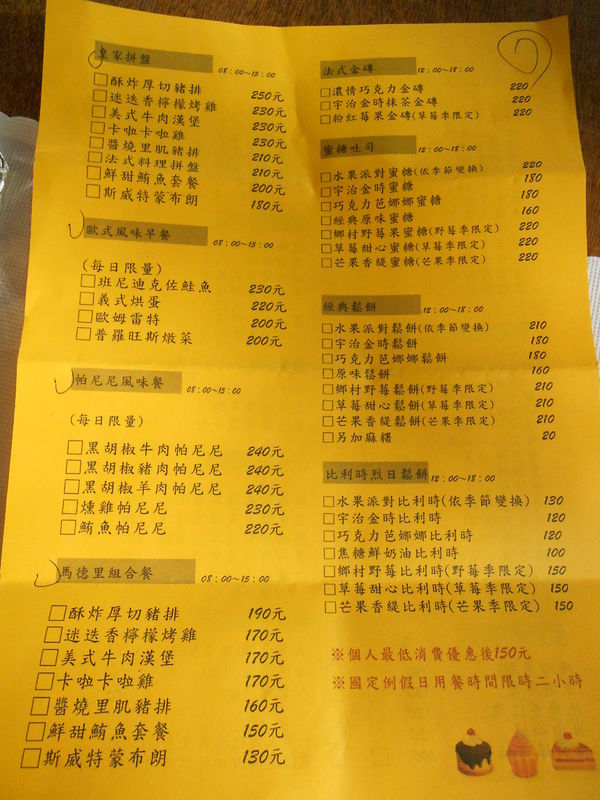 皇家拼盤 08：00～15：00
酥炸厚切豬排 250元
迷迭香檸檬烤雞 230元
美式牛肉漢堡 230元
卡啦卡啦雞 230元
醬燒里肌豬排 210元
法式料理拼盤 210元
鮮甜鮪魚套餐 200元
斯威特蒙布朗 180元
歐式風味早餐 08：00～15：00
(每日限量)
班尼迪克佐鮭魚 230元
義式烘蛋 220元
歐姆雷特 200元
普羅旺斯燉菜 200元
帕尼尼風味餐 08：00～15：00
(每日限量)
黑胡椒牛肉帕尼尼 240元
黑胡椒豬肉帕尼尼 240元
黑胡椒羊肉帕尼尼 240元
燻雞帕尼尼 230元
鮪魚帕尼尼 220元
馬德里組合餐 08：00～15：00
酥炸厚切豬排 190元
迷迭香檸檬烤雞 170元
美式牛肉漢堡 170元
卡啦卡啦雞 170元
醬燒里肌豬排 160元
鮮甜鮪魚套餐 150元
斯威特蒙布朗 130元
法式金磚 12：00～18：00
濃情巧克力金磚 220
宇治金時抹茶金磚 220
粉紅莓果金磚(草莓季限定) 220
蜜糖吐司 12：00～18：00
水果派對蜜糖(依季節變換) 220
宇治金時蜜糖 180
巧克力芭娜娜蜜糖 180
經典原味蜜糖 160
鄉村野莓果蜜糖(野莓季限定) 220
草莓甜心蜜糖(草莓季限定) 220
芒果香緹蜜糖(芒果季限定) 220
經典鬆餅 12：00～18：00
水果派對鬆餅(依季節變換) 210
宇治金時鬆餅 180
巧克力芭娜娜鬆餅 180
原味鬆餅 160
鄉村野莓鬆餅(野莓季限定) 210
草莓甜心鬆餅(草莓季限定) 210
芒果香緹鬆餅(芒果季限定) 210
另加麻糬 20
比利時烈日鬆餅 12：00～18：00
水果派對比利時(依季節變換) 130
宇治金時比利時 120
巧克力芭娜娜比利時 120
焦糖鮮奶油比利時 100
鄉村野莓比利時(野莓季限定) 150
草莓甜心比利時(草莓季限定) 150
芒果香緹比利時(芒果季限定) 150
※個人最低消費優惠後150元
※國定例假日用餐時間限時二小時